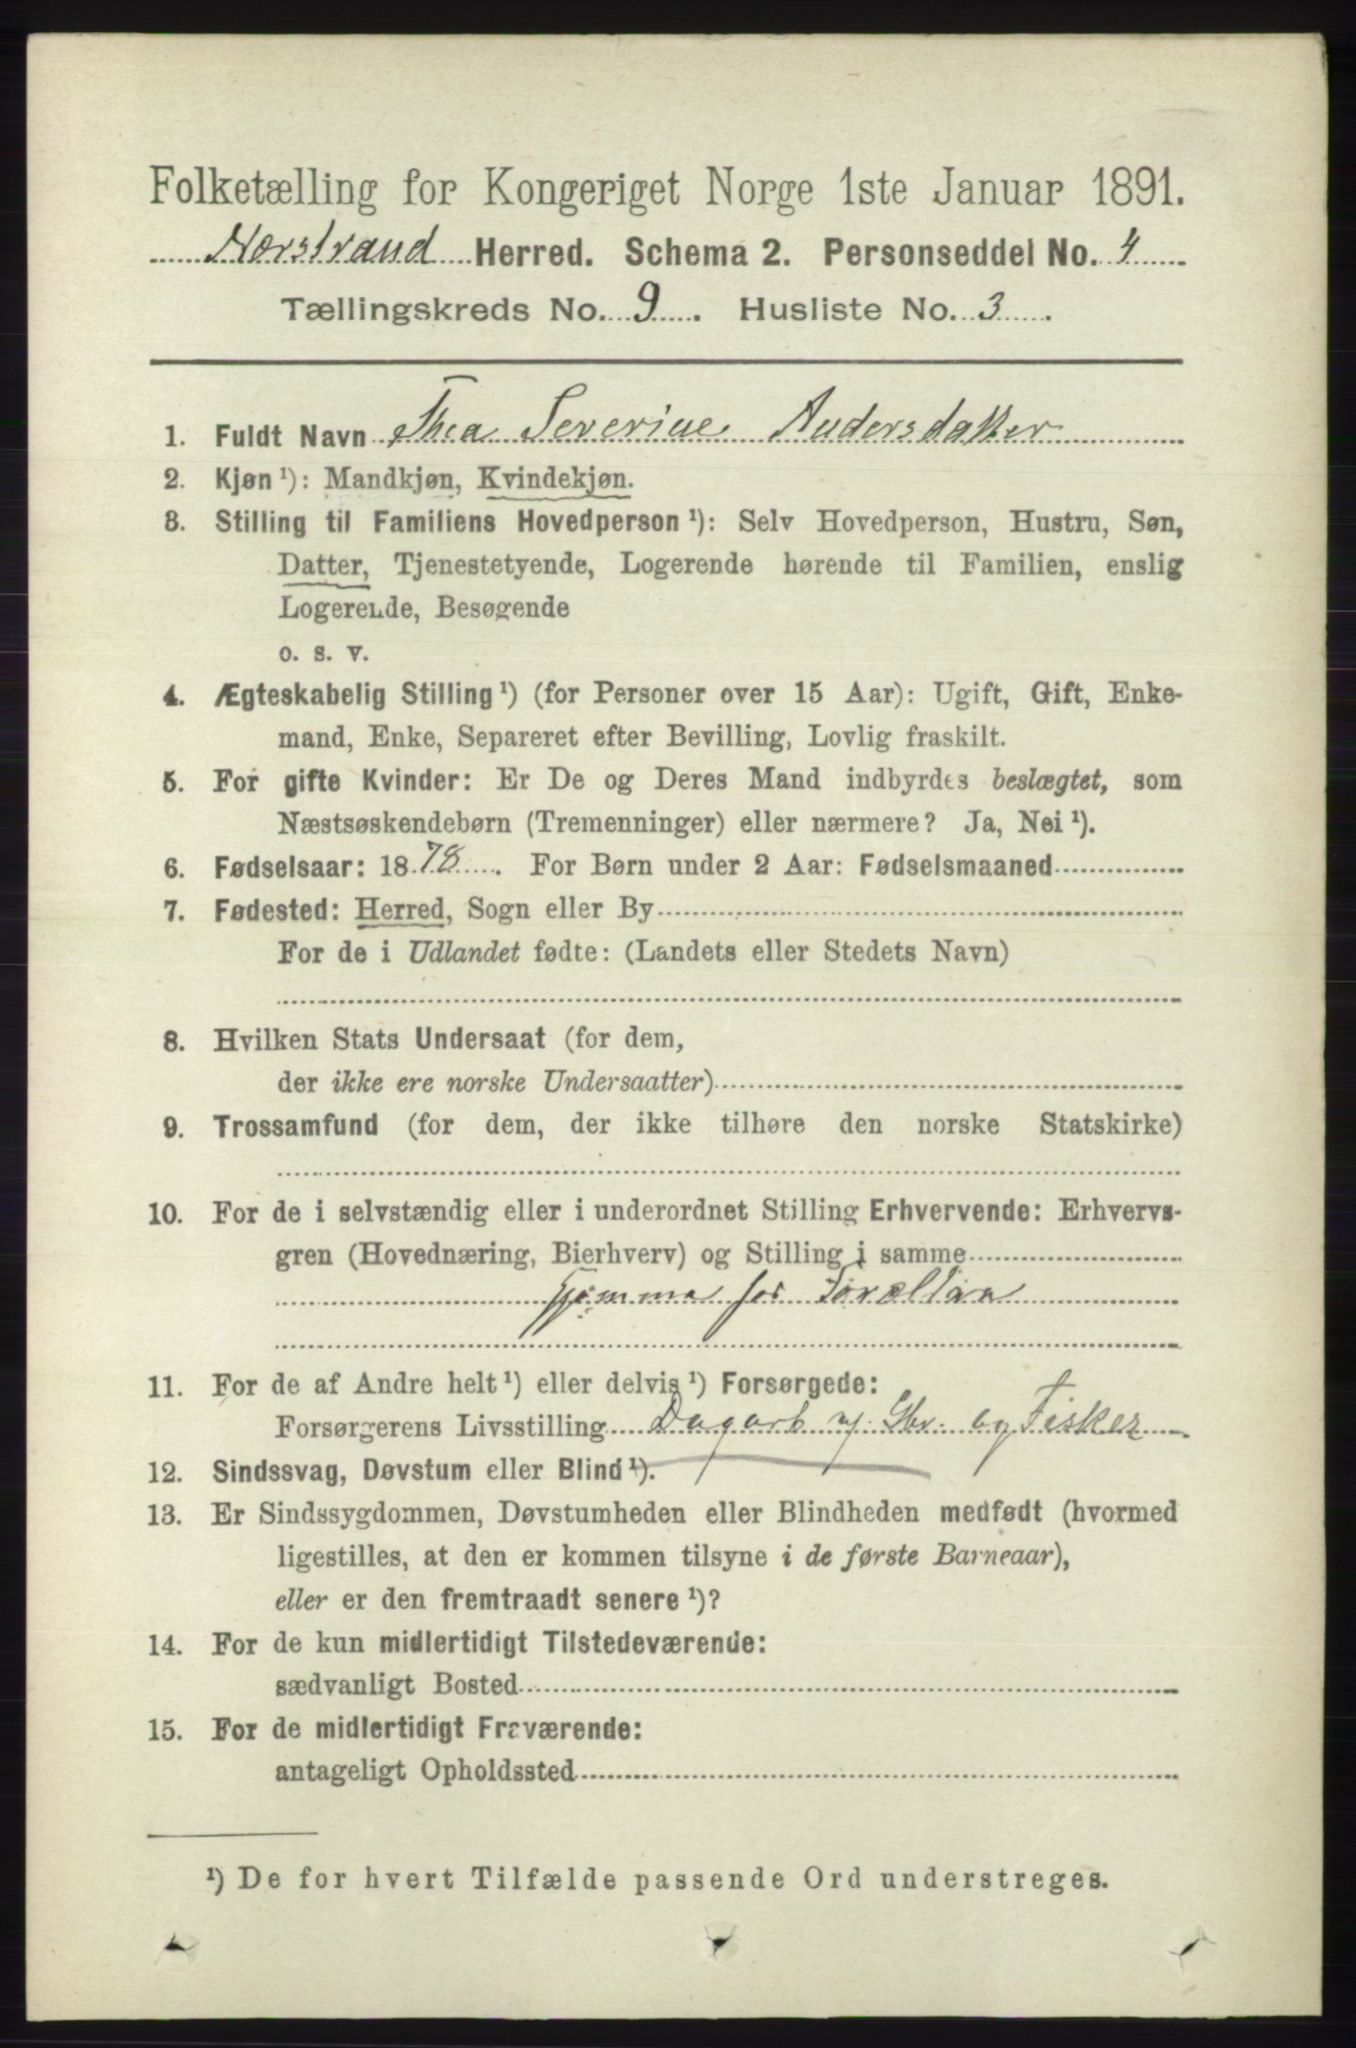 Folketælling for Kongeriget Norge 1ste Januar 1891.
Nærstrand Herred. Schema 2. Personseddel No. 4
Tællingskreds No. 9. Husliste No. 3.
1. Fuldt Navn Thea Severine Andersdatter
2. Kjøn ¹): Mandkjøn, Kvindekjøn.
3. Stilling til Familiens Hovedperson ¹): Selv Hovedperson, Hustru, Søn,
Datter, Tjenestetyende, Logerende hørende til Familien, enslig
Logerende, Besøgende
o. s. v.
4. Ægteskabelig Stilling ¹) (for Personer over 15 Aar): Ugift, Gift, Enke-
mand, Enke, Separeret efter Bevilling, Lovlig fraskilt.
5. For gifte Kvinder: Er De og Deres Mand indbyrdes beslægtet, som
Næstsøskendebørn (Tremenninger) eller nærmere? Ja, Nei ¹).
6. Fødselsaar: 1878. For Børn under 2 Aar: Fødselsmaaned
7. Fødested: Herred, Sogn eller By
For de i Udlandet fødte: (Landets eller Stedets Navn)
8. Hvilken Stats Undersaat (for dem,
der ikke ere norske Undersaatter)
9. Trossamfund (for dem, der ikke tilhøre den norske Statskirke)
10. For de i selvstændig eller i underordnet Stilling Erhvervende: Erhvervs-
gren (Hovednæring, Bierhverv) og Stilling i samme
Hjemme hos
11. For de af Andre helt ¹) eller delvis ¹) Forsørgede:
Forsørgerens Livsstilling Dagarb v/. Gbr. og Fisker
12. Sindssvag, Døvstum eller Blind ¹).
13. Er Sindssygdommen, Døvstumheden eller Blindheden medfødt (hvormed
ligestilles, at den er kommen tilsyne i de første Barneaar),
eller er den fremtraadt senere ¹)?
14. For de kun midlertidigt Tilstedeværende:
sædvanligt Bosted
15. For de midlertidigt Fraværende:
antageligt Opholdssted
¹) De for hvert Tilfælde passende Ord understreges.